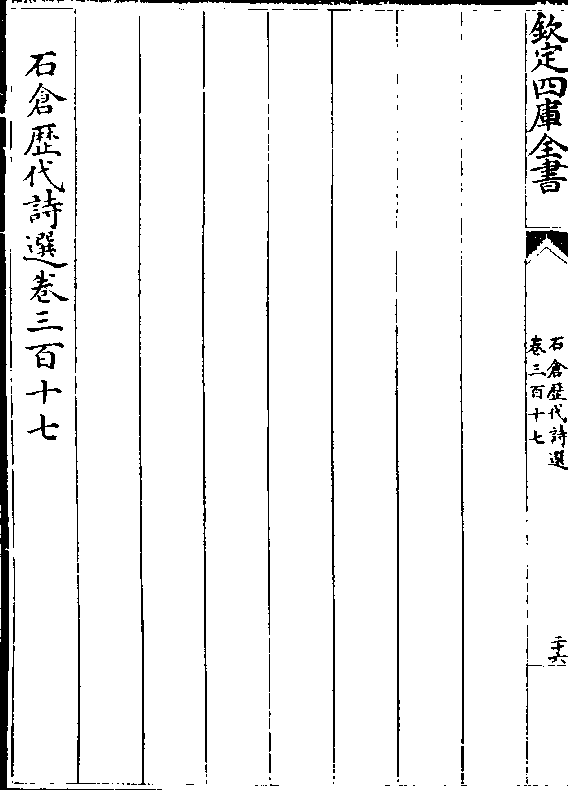 欽定四庫全書
石倉歴代詩選
卷三百十七
二十六
石倉歴代詩選卷三百十七